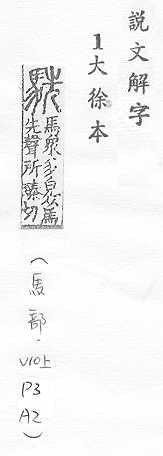 說文解字
1大徐本
駪
馬衆多皃从馬
先聲所臻切
(馬部·V10上 P3 A2)